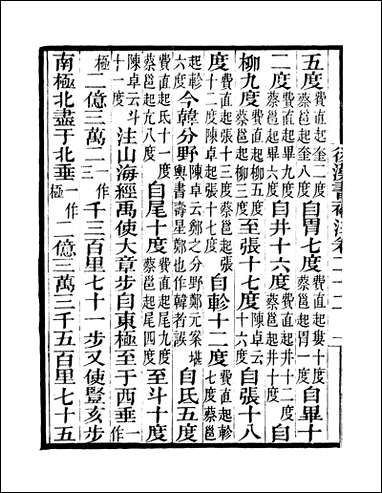 後漢書補注卷二十二
五度費直起奎二度蔡邕起奎八度自胃七度費直起婁十度蔡邕起胃一度自畢十
二度費直起畢九度蔡邕起畢六度自井十六度費直起井十二度蔡邕起井十度自
柳九度費直起柳五度蔡邕起柳三度至張十七度陳卓云十六度自張十八
度費直起張十三度蔡邕起張十二度陳卓起張十七度自軫十二度費直起軫七度蔡邕
起軫六度今韓分野陳卓云鄭之分野鄭元案堪輿書壽星鄭也作韓者誤自氐五度
費直起氐十一度蔡邕起亢八度自尾十度費直起尾九度蔡邕起尾四度至斗十度
陳卓云斗十一度注山海經禹使大章步自東極至于西垂一作
極二億三萬二一作三千三百里七十一步又使豎亥步
南極北盡于北垂一作極二億三萬三千五百里七十五